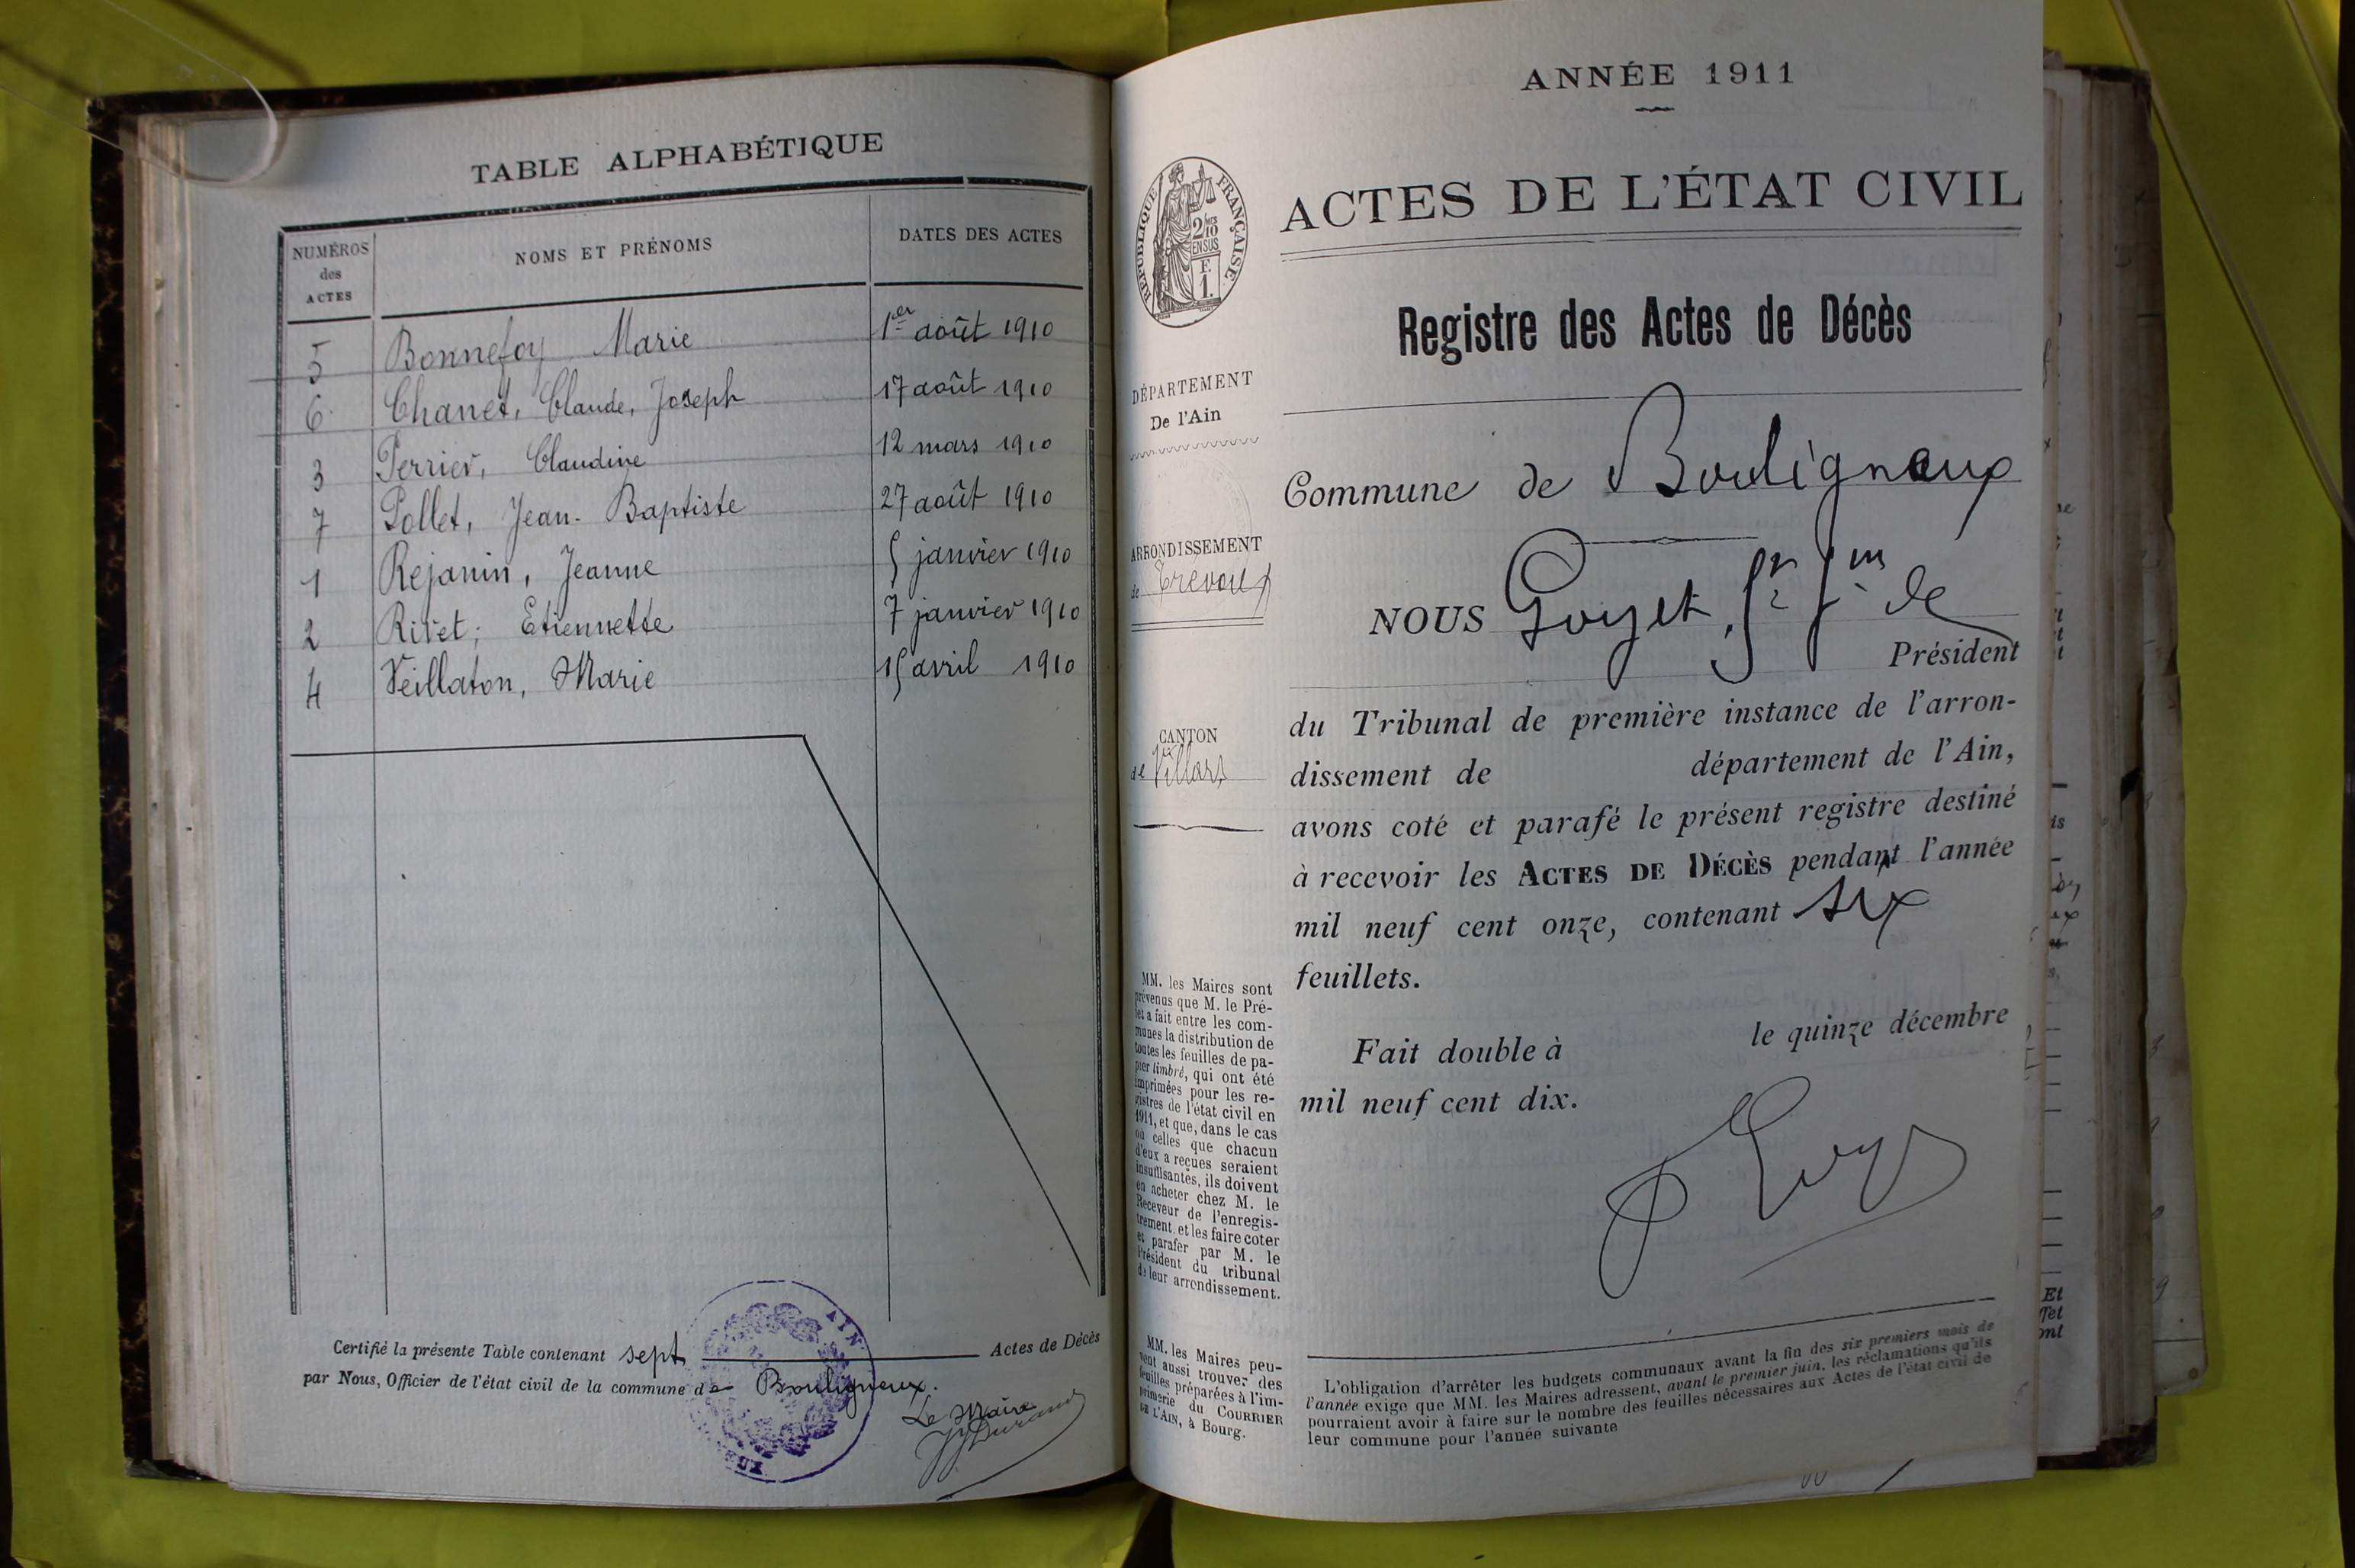 TABLE ALPHABÉTIQUE
NUMÉROS des ACTES NOMS ET PRÉNOMS DATES DES ACTES
5 Bonnefoy Marie 1er août 1910
6 Chanet, Claude, Joseph 17 août 1910
3 Perrier, Claudine 12 mars 1910
7 Pollet, Jean-Baptiste 27 août 1910
1 Rejanin, Jeanne 5 janvier 1910
2 Rivet, Etiennette 7 janvier 1910
4 Veillaton, Marie 15 avril 1910
Certifié la présente Table contenant sept Actes de Décès
par Nous, Officier de l'état civil de la commune de Bouligneux.
Le Maire
JJ Durand
AIN
ANNÉE 1911
RÉPUBLIQUE FRANÇAISE
2 fres
10
EN SUS
E.
1.
ACTES DE L'ÉTAT CIVIL
Registre des Actes de Décès
DÉPARTEMENT
De l'Ain
ARRONDISSEMENT
de Trévoux
CANTON
de Villars
MM. les Maires sont
prévenus que M. le Pré-
fet a fait entre les com-
munes la distribution de
toutes les feuilles de pa-
pier timbré, qui ont été
imprimées pour les re-
gistres de l'état civil en
1911, et que, dans le cas
où celles que chacun
d'eux a reçues seraient
insuffisantes, ils doivent
en acheter chez M. le
Receveur de l'enregis-
trement et les faire coter
et parafer par M. le
Président du tribunal
de leur arrondissement.
MM. les Maires peu-
vent aussi trouver des
feuilles préparées à l'im-
primerie du COURRIER
DE L'AIN, à Bourg.
Commune de Bouligneux
NOUS Goyet, de
Président
du Tribunal de première instance de l'arron-
dissement de département de l'Ain,
avons coté et parafé le présent registre destiné
à recevoir les ACTES DE DÉCÈS pendant l'année
mil neuf cent onze, contenant six
feuillets.
Fait double à le quinze décembre
mil neuf cent dix.
L'obligation d'arrêter les budgets communaux avant la fin des six premiers mois de
l'année exige que MM. les Maires adressent, avant le premier juin, les réclamations qu'ils
pourraient avoir à faire sur le nombre des feuilles nécessaires aux Actes de l'état civil de
leur commune pour l'année suivante